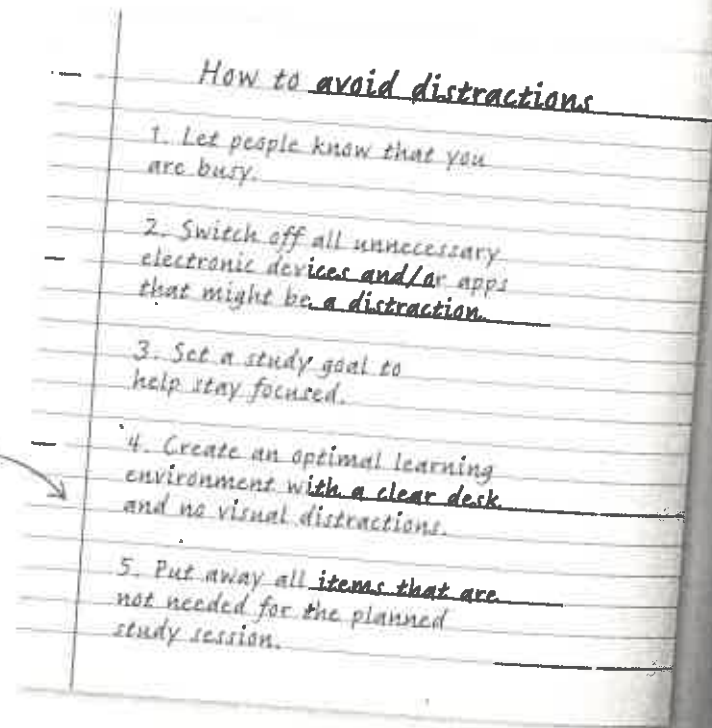 How to avoid distractions
1. Let people know that you
are busy.
2. Switch off all unnecessary
electronic devices and/or apps
that might be a distraction.
3. Set a study goal to
help stay focused.
4. Create an optimal learning
environment with a clear desk
and no visual distractions.
5. Put away all items that are
not needed for the planned
study session.